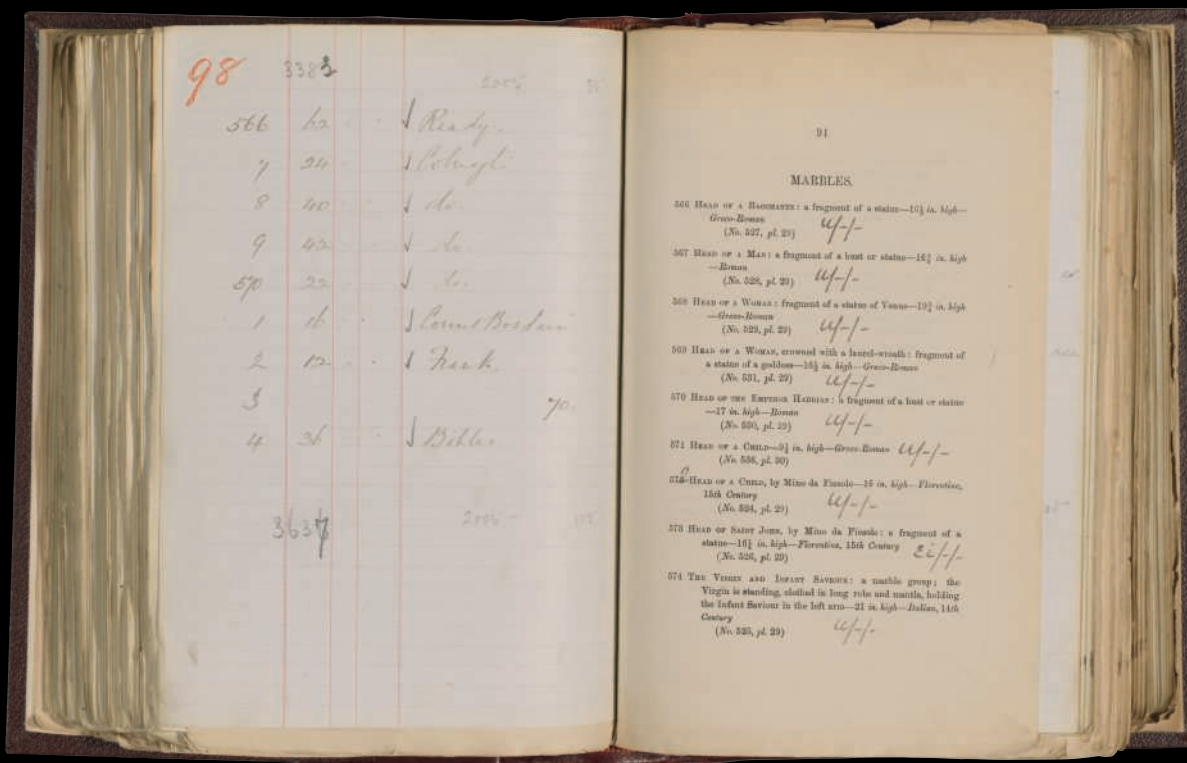 98 3383
2005
566 62 Ready.
7 24
8 40 do.
9 42 do.
570 22 do.
1 16 Count
2 12 Frank.
3 70.
4 36 Bihler
3637 2005
91
MARBLES.
566 HEAD OF A BACCHANTE: a fragment of a statue—16½ in. high—
Græco-Roman
(No. 527, pl. 29) u/-/-
567 HEAD OF A MAN: a fragment of a bust or statue—16¾ in. high
—Roman
(No. 528, pl. 29) u/-/-
568 HEAD OF A WOMAN: fragment of a statue of Venus—19¾ in. high
—Græco-Roman
(No. 529, pl. 29) u/-/-
569 HEAD OF A WOMAN, crowned with a laurel-wreath: fragment of
a statue of a goddess—16½ in. high—Græco-Roman
(No. 531, pl. 29) u/-/-
570 HEAD OF THE EMPEROR HADRIAN: a fragment of a bust or statue
—17 in. high—Roman
(No. 530, pl. 29) u/-/-
571 HEAD OF A CHILD—9½ in. high—Græco-Roman u/-/-
(No. 536, pl. 30)
572 HEAD OF A CHILD, by Mino da Fiesole—15 in. high—Florentine,
15th Century
(No. 524, pl. 29) u/-/-
573 HEAD OF SAINT JOHN, by Mino da Fiesole: a fragment of a
statue—16½ in. high—Florentine, 15th Century
(No. 526, pl. 29) Ei/-/-
574 THE VIRGIN AND INFANT SAVIOUR: a marble group; the
Virgin is standing, clothed in long robe and mantle, holding
the Infant Saviour in the left arm—21 in. high—Italian, 14th
Century
(No. 525, pl. 29) u/-/-